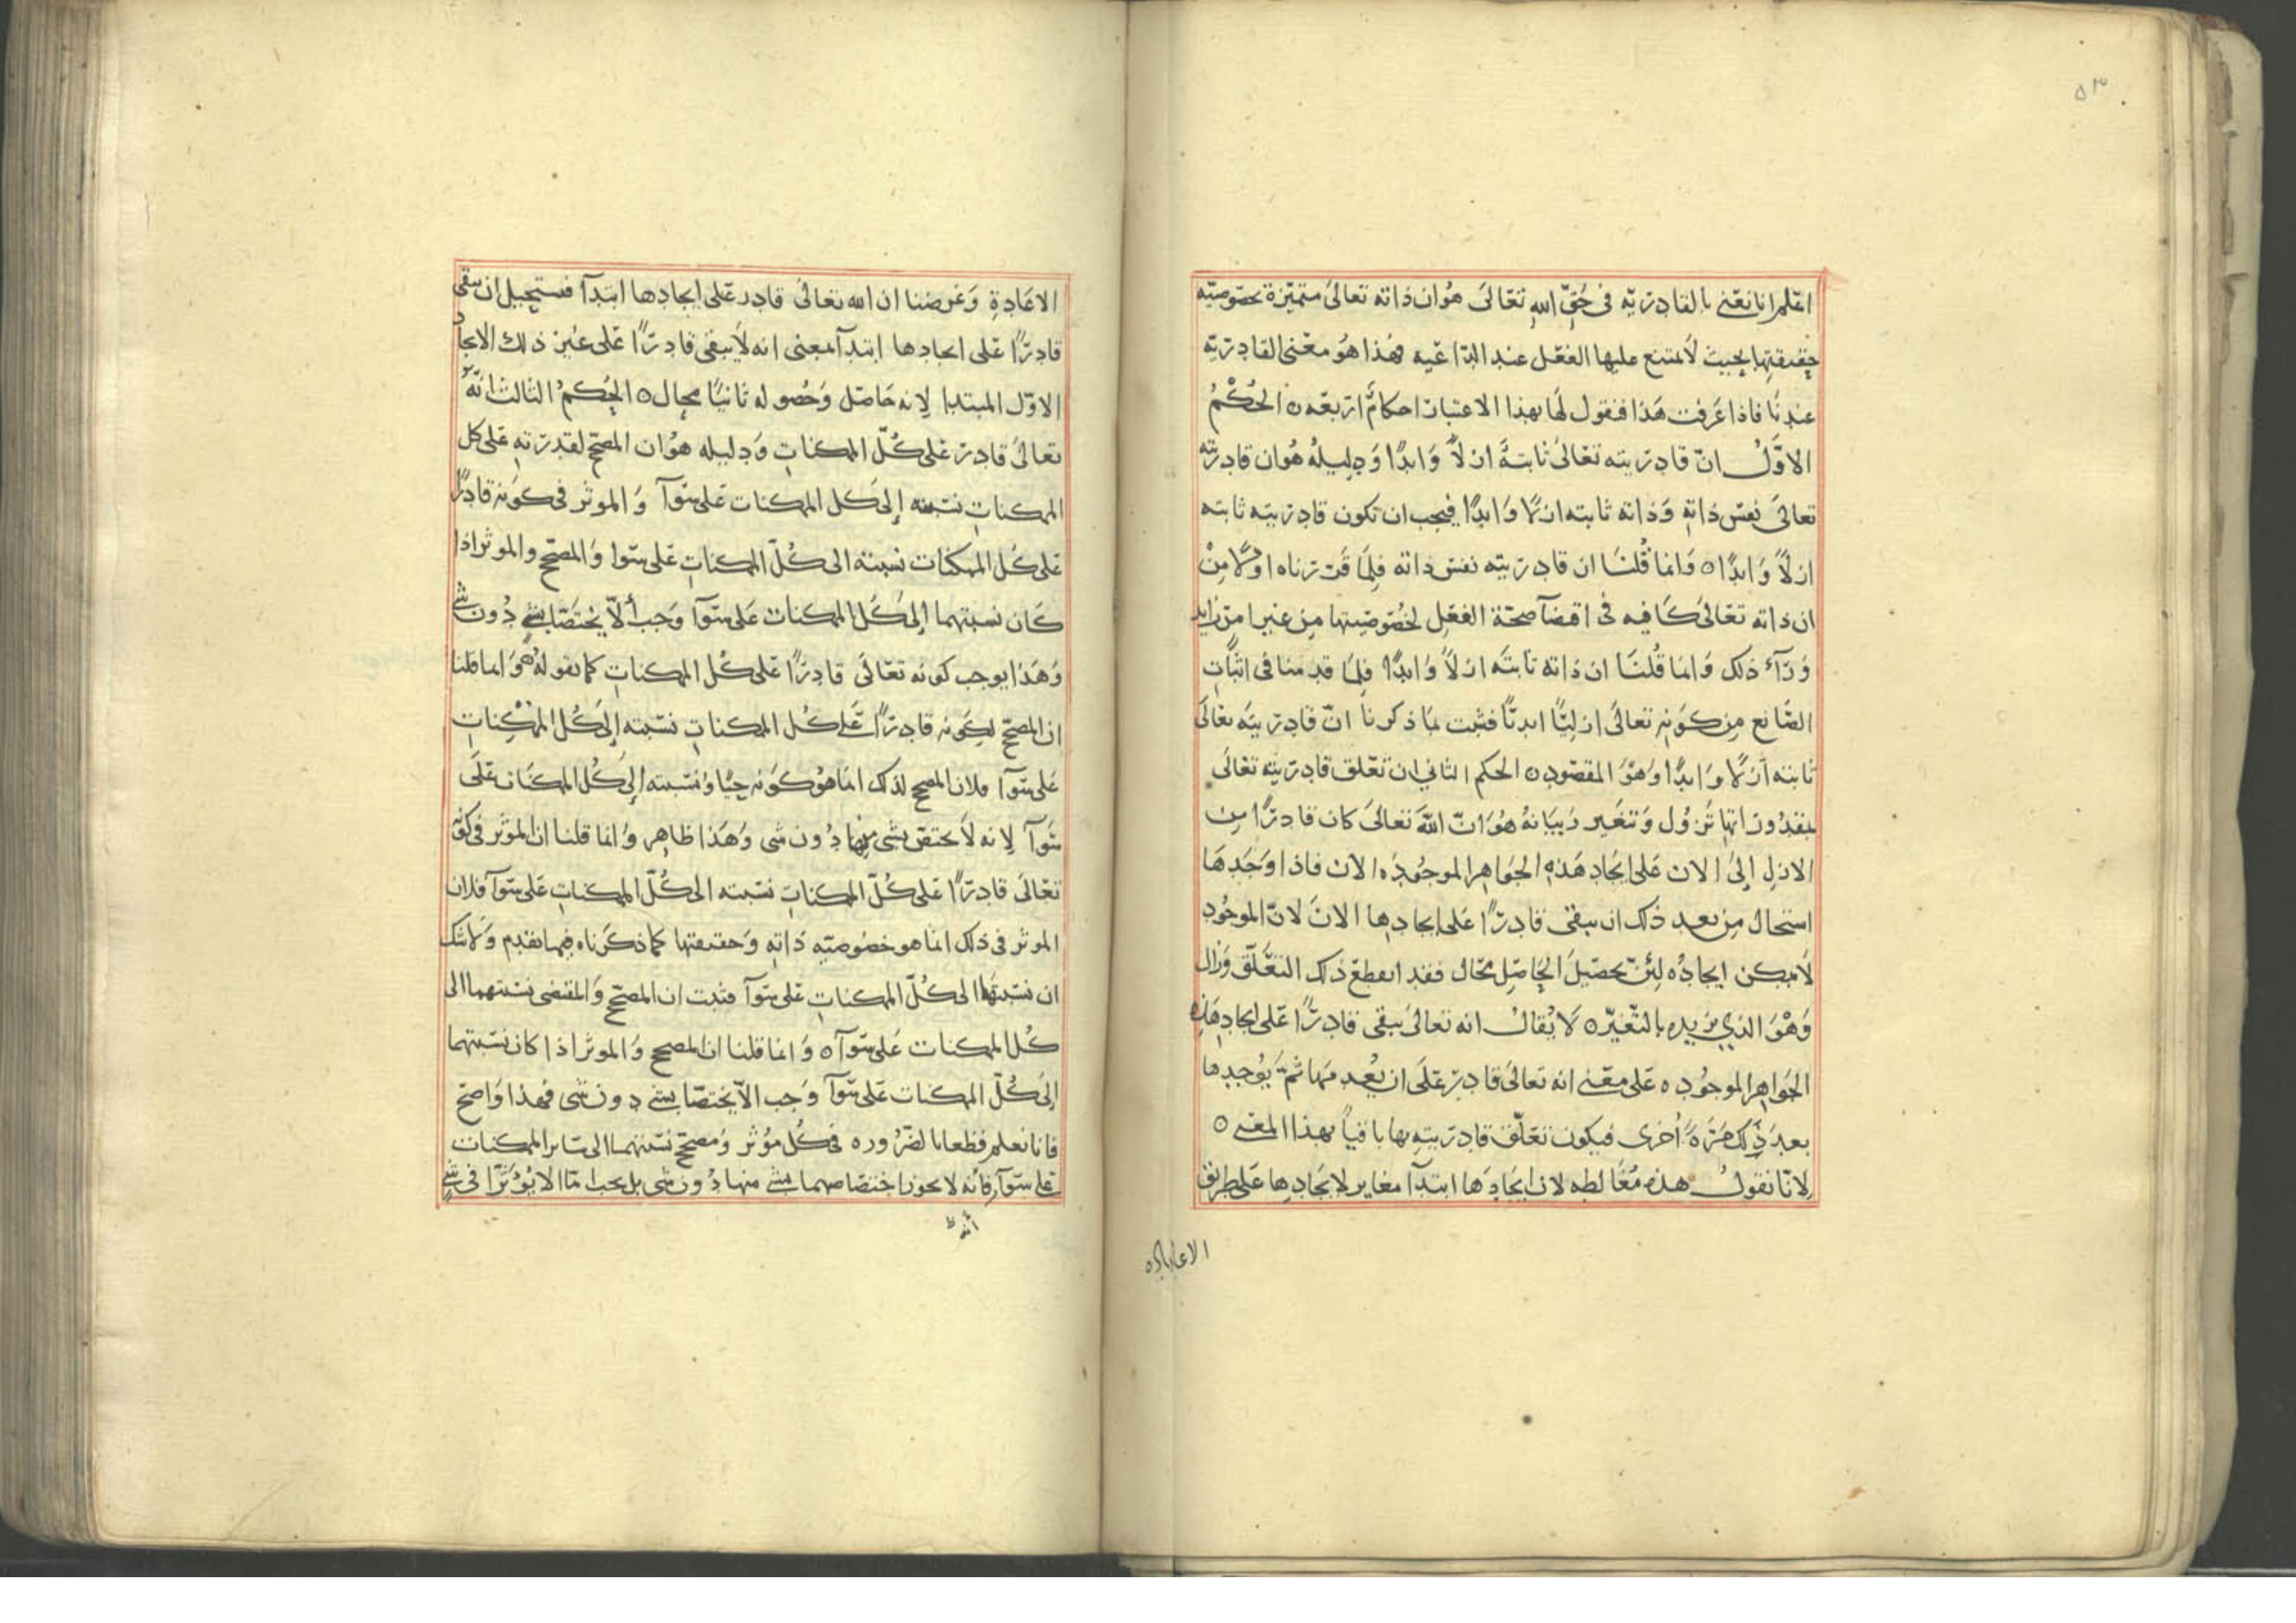 ٥٣
اعلم انا نعني بالقادريّه في حَقِّ اللهِ تعَالىَ هُوان ذاته تعالىَ متميّزة بحصَوصيّه
حقيقتِها بحيث لاَ متنع عليها الفعَل عند الدّاعَيه فهَذا هُو معَنى القادريّه
عندنَا فاذا عَرفت هَذا فنقول لهَا بهذا الاعتبار احكامٌ اربعَه ٥ الحُكْمُ
الاوَّلُ انّ قادريته تعَالىَ ثابتهٌ ازلاً وَابدًا وَدليلهُ هُوان قادريّته
تعالىَ نفسَ ذاتهِ وَذاته ثابته ازلاً وَابدًا فيجب ان تكون قادريته ثابته
ازلاً وَابدًا ٥ وَانما قُلنَا ان قادريته نفس ذاته فلِمَا قَررناه اولاً مِنْ
ان ذاته تعَالىَ كَافيه في اقضآ صحّة الفعَل لخصُوصيتها مِن غير امرٍ زايد
وَرَآء ذلك وَانما قُلنَا ان ذاته ثابتَه ازلاً وَابدًا فلِمَا قدمنا في اثبَاتِ
الصَّانع مِن كوَنهِ تعالىَ ازليًّا ابديًّا فثبت بمَا ذكرنا انّ قادريتَه تعَالىَ
ثابته اَزلاً وَابدًا وَهوَ المقصَود ٥ الحكم الثاني ان تعَلق قادريته تعَالىَ
بمقدُوراتها تَزُول وَتتغَير وَبيَانهُ هُوَ انّ اللهَ تعَالىَ كان قادرًا مِن
الازلِ إلىَ الان عَلى ايجَاد هَذهِ الجوَاهِر الموجُودَه الان فاذا اوَجَدهَا
استحال مِن بعد ذلك ان يبقى قادرًا عَلى ايجادِها الانَ لانّ الموجُود
لاَ يمكن ايجادُه لِئن تحصيَل الحاصِل محَال فقد انقطعَ ذلك التعَلّق وَزال
وَهْوَ الذي نريده بالتّغيّر ٥ لاَ يُقالُ انه تعَالىَ يبقى قادرًا عَلى ايجادِ هَذهِ
الجوَاهِر الموجُوده عَلى معَنى انه تعَالىَ قادرٌ عَلىَ ان يُعْدمَها ثمَّ يُوجدها
بعدَ ذَلِك مَرَّةً أخرى فيكون تعَلّق قادريته بها باقياً بهذا المعَنى ٥
لِانّا نقولُ هذه مُغَالطه لان ايجَادَهَا ابتدآ مغاير لايجَادِها عَلى طريق
الاعاده
الاعَادةِ وَغرضنا ان الله تعالىَ قادر عَلى ايجادها ابتدآ فيستحيل ان يبقى
قادرًا عَلى ايجادها ابتدآ بمعنى انه لاَ يبقى قادرًا عَلى عَين ذلك الايجاد
الاوّل المبتدا لِانه حَاصَل وَحُصوله ثانيًا محال ٥ الحُكمُ الثالث انّه
تعالىَ قادر عَلى كُلّ الممكناتِ وَدليله هوُان المصحّح لقدرتهِ عَلى كل
الممكناتِ نسَبته إلىَ كل الممكنات عَلى سَوآ وَالموثر في كوَنه قادرًا
عَلى كُل الممكنات نسبته الى كُلّ الممكناتِ عَلى سَوا وَالمصَحّح والموثر اذا
كَان نسبتهما إلىَ كَُل الممكنات عَلى سَوآ وَجب ألاّ يخْتصَا بشي دُون شي
وَهَذا يوجب كونه تعَالىَ قادرًا عَلى كُل الممكناتِ كما نقولهُ هوَ وَانما قلنا
ان المصَحّح لكِوَنه قادرًا عَلى كُل الممكناتِ نسَبته إلىَ كُل الممْكِناتِ
عَلى سَوآ فلان المصحح لذلك انمَا هوُ كوَنه حيًّا وَنسَبته إلىَ كُل الممكنَات عَلىَ
سَوآ لِانه لاَ يختصَ بشي مِنها دُون شي وَهَذا ظاهِر وَانما قلنا ان الموثر في كونه
تعَالىَ قادرًا عَلى كُلّ الممكنات نسَبته الى كُلّ الممكناتِ عَلى سَوآ فلان
الموثر في ذلك انمَا هو خصُوصيّه ذاتهِ وَحقيقتها كما ذكرَناه فِيما تقدم وَلاَ شك
ان نسَبتهَا الى كُلّ الممكناتِ عَلى سَوآ فثبت ان المصَحّح وَالمقتضى نسَبتهما الى
كُل الممكنات عَلى سَوآ ٥ وَانما قلنا ان المصحح وَالموثر اذا كان نسَبتهما
إلىَ كُلّ الممكنات عَلى سَوآ وَجب الاّ يختصّا بشي دون شَى فهَذا وَاضِح
فانا نعلم قطعا بالضَّروره في كُل مؤثر وَمصَحّح نسَبتهما الى سَاير الممكنات
عَلى سَوآ فانّه لا يجوز اختصَاصهما بشي منها دُون شَى بل يجب امّا الا يُؤثرّا في شي